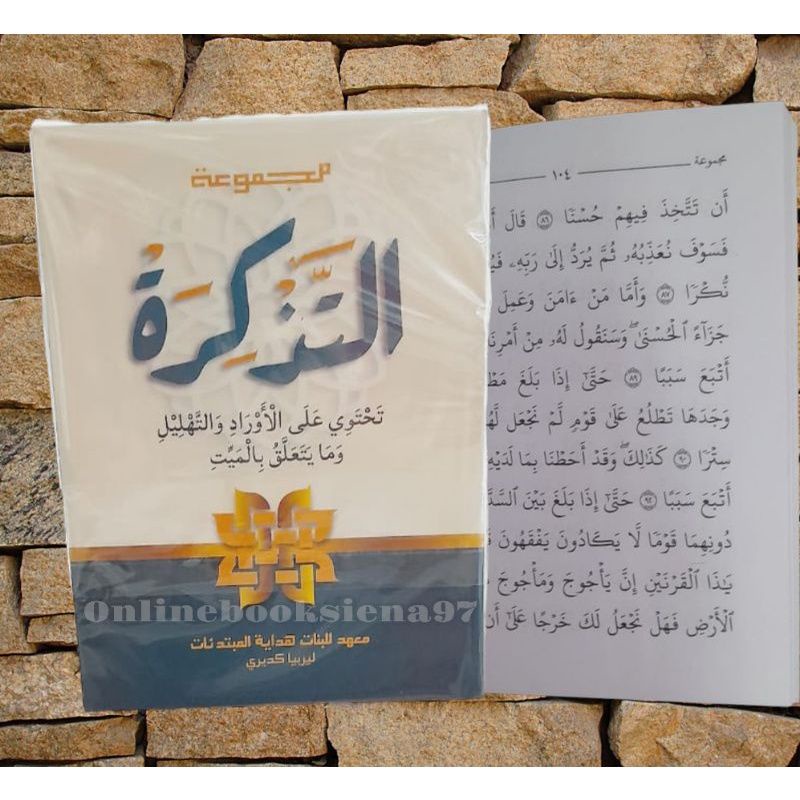 مجموعة
التَّذْكِرَةُ
تَحْتَوِي عَلَى الْأَوْرَادِ وَالتَّهْلِيْلِ
وَمَا يَتَعَلَّقُ بِالْمَيِّتِ
Onlinebooksiena97
معهد للبنات هداية المبتدئات
ليربيا كديري
مجموعة
١٠٤
أَن تَتَّخِذَ فِيهِمْ حُسْنًا ۝٨٦ قَالَ
فَسَوْفَ نُعَذِّبُهُۥ ثُمَّ يُرَدُّ إِلَىٰ رَبِّهِۦ
نُّكْرًا ۝٨٧ وَأَمَّا مَنْ ءَامَنَ وَعَمِلَ
جَزَآءً ٱلْحُسْنَىٰ ۖ وَسَنَقُولُ لَهُۥ مِنْ أَمْرِنَا
أَتْبَعَ سَبَبًا ۝٨٩ حَتَّىٰٓ إِذَا بَلَغَ
وَجَدَهَا تَطْلُعُ عَلَىٰ قَوْمٍ لَّمْ نَجْعَل
سِتْرًا ۝٩٠ كَذَٰلِكَ ۖ وَقَدْ أَحَطْنَا بِمَا لَدَيْهِ
أَتْبَعَ سَبَبًا ۝٩٢ حَتَّىٰٓ إِذَا بَلَغَ بَيْنَ
دُونِهِمَا قَوْمًا لَّا يَكَادُونَ يَفْقَهُونَ
يَٰذَا ٱلْقَرْنَيْنِ إِنَّ يَأْجُوجَ وَمَأْجُوجَ
ٱلْأَرْضِ فَهَلْ نَجْعَلُ لَكَ خَرْجًا عَلَىٰٓ أَن